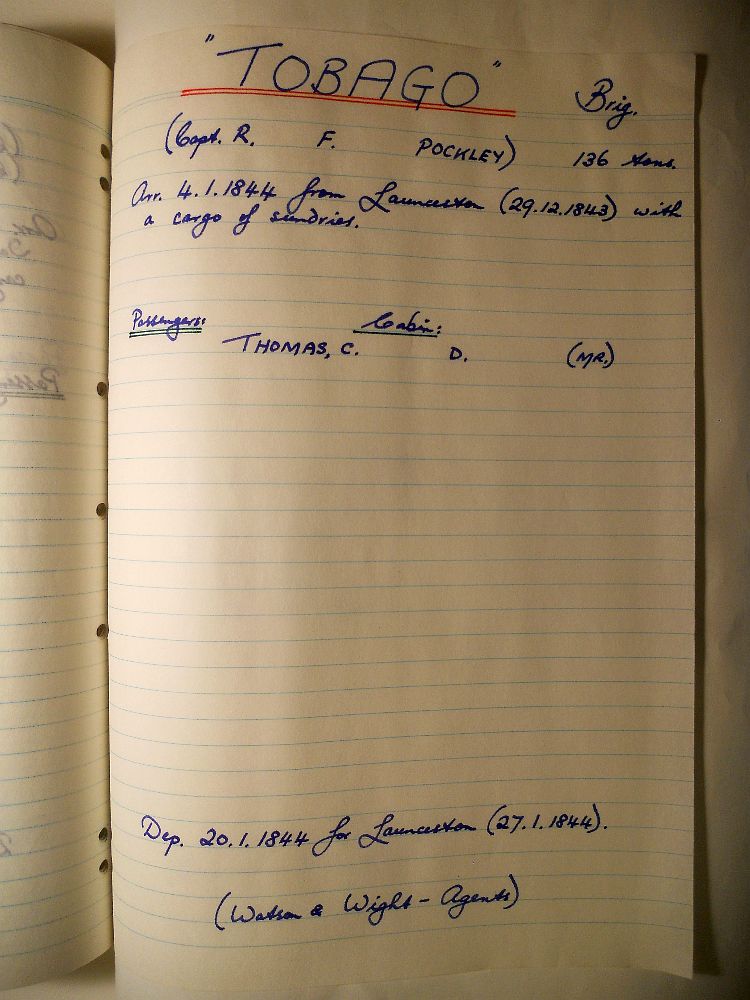 "TOBAGO" Brig.
(Capt. R. F. POCKLEY) 136 tons.
Arr. 4.1.1844 from Launceston (29.12.1843) with
a cargo of sundries.
Passengers: Cabin:
THOMAS, C. D. (MR.)
Dep. 20.1.1844 for Launceston (27.1.1844).
(Watson & Wight - Agents)